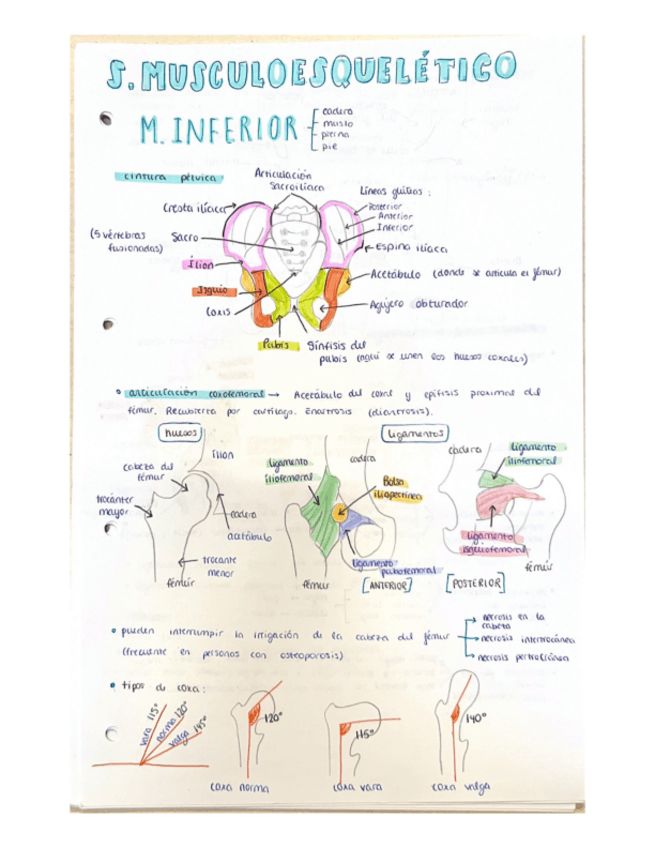 S. MUSCULOESQUELÉTICO
M. INFERIOR
cadera
muslo
pierna
pie
cintura pélvica:
Articulación
sacroilíaca
Líneas glúteas:
Posterior
Anterior
Inferior
Cresta ilíaca
(5 vértebras
fusionadas)
Sacro
Espina ilíaca
Ílion
Acetábulo (donde se articula el fémur)
Isquio
Coxis
Agujero obturador
Pubis
Sínfisis del
pubis (aquí se unen los huesos coxales)
articulación coxofemoral → Acetábulo del coxal y epífisis proximal del
fémur. Recubierta por cartílago. Enartrosis (diartrosis).
huesos
ligamentos
ílion
cabeza del
fémur
trocánter
mayor
cadera
acetábulo
trocante
menor
fémur
ligamento
iliofemoral
cadera
Bolsa
iliopectínea
ligamento
pubofemoral
fémur
[ANTERIOR]
cadera
ligamento
iliofemoral
ligamento
isquiofemoral
fémur
[POSTERIOR]
pueden interrumpir la irrigación de la cabeza del fémur
(frecuente en personas con osteoporosis)
necrosis en la
cabeza
necrosis intertrocánea
necrosis pertrocánea
tipos de coxa:
vara 115°
norma 120°
valga 145°
120°
coxa norma
115°
coxa vara
140°
coxa valga